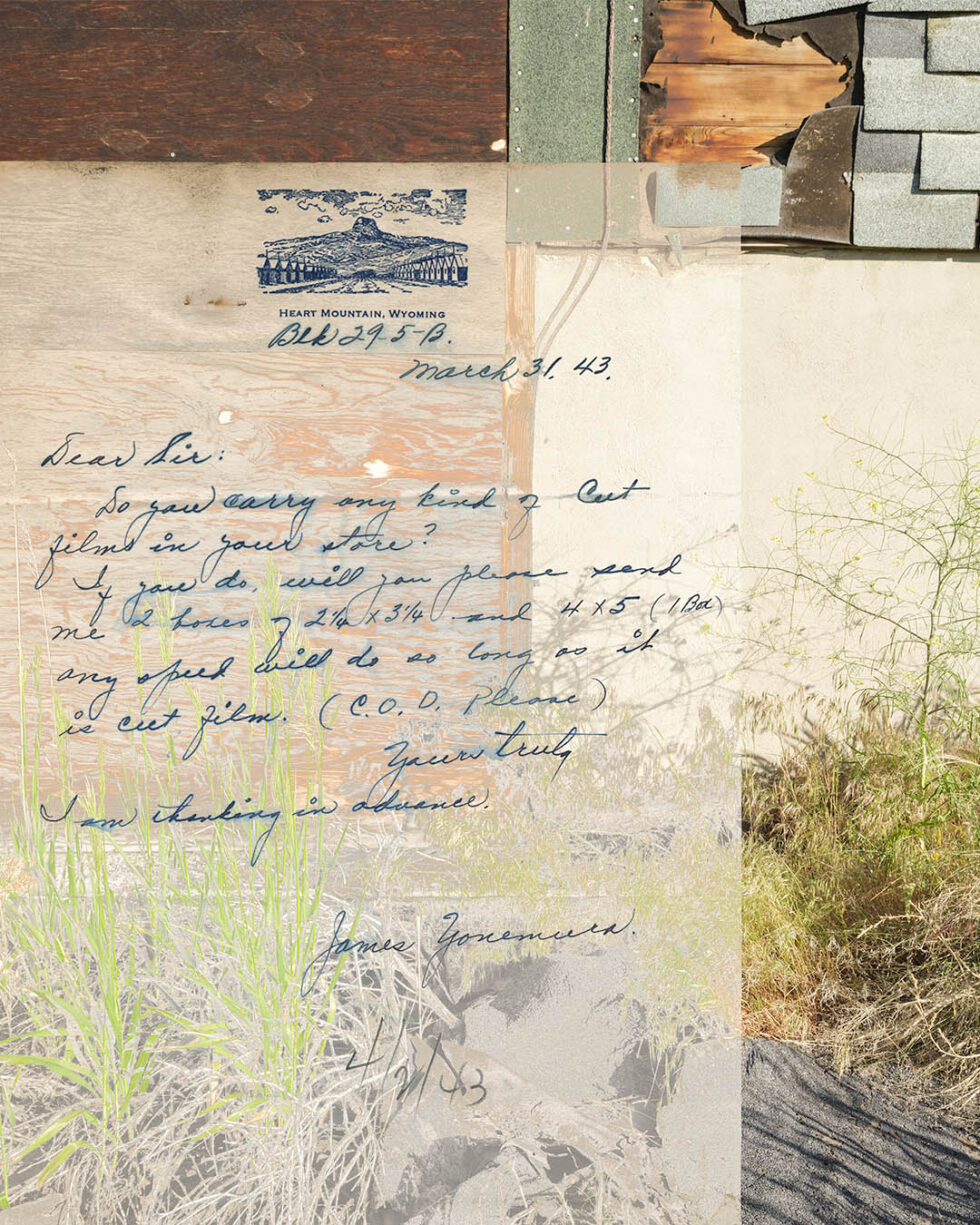 HEART MOUNTAIN, WYOMING
Blk 29-5-B.
March 31, 43.
Dear Sir:
Do you carry any kind of Cut
films in your store?
If you do, will you please send
me 2 boxes of 2 1/4 x 3 1/4 and 4 x 5 (1 Box)
any speed will do so long as it
is cut film. (C.O.D. Please)
Yours truly
I am thanking in advance.
James Yonemura.
4/2/43